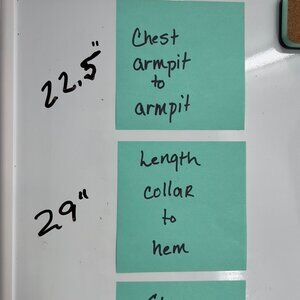 22.5"
Chest
armpit
to
armpit
29"
Length
collar
to
hem